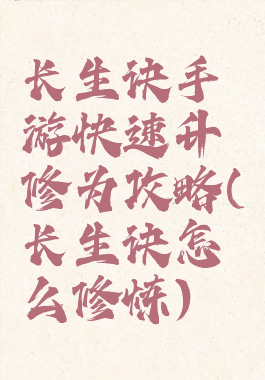 长生诀手
游快速升
修为攻略(
长生诀怎
么修炼)